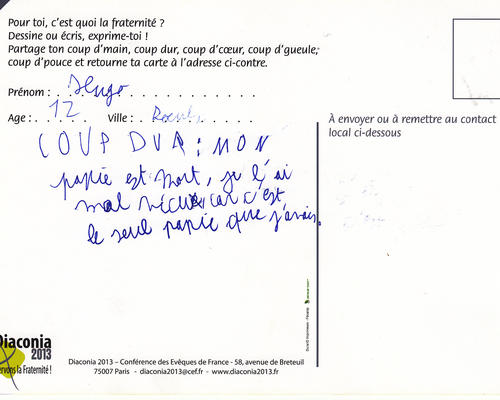 Pour toi, c'est quoi la fraternité ?
Dessine ou écris, exprime-toi !
Partage ton coup d'main, coup dur, coup d'cœur, coup d'gueule,
coup d'pouce et retourne ta carte à l'adresse ci-contre.
Prénom : Hugo
Age : 12 Ville :
À envoyer ou à remettre au contact
local ci-dessous
COUP DUR : MON
papie est mort, je l'ai
mal vécue car c'est
le seul papie que j'avais.
Diaconia
2013
ervons la Fraternité !
Diaconia 2013 – Conférence des Evêques de France - 58, avenue de Breteuil
75007 Paris - diaconia2013@cef.fr - www.diaconia2013.fr